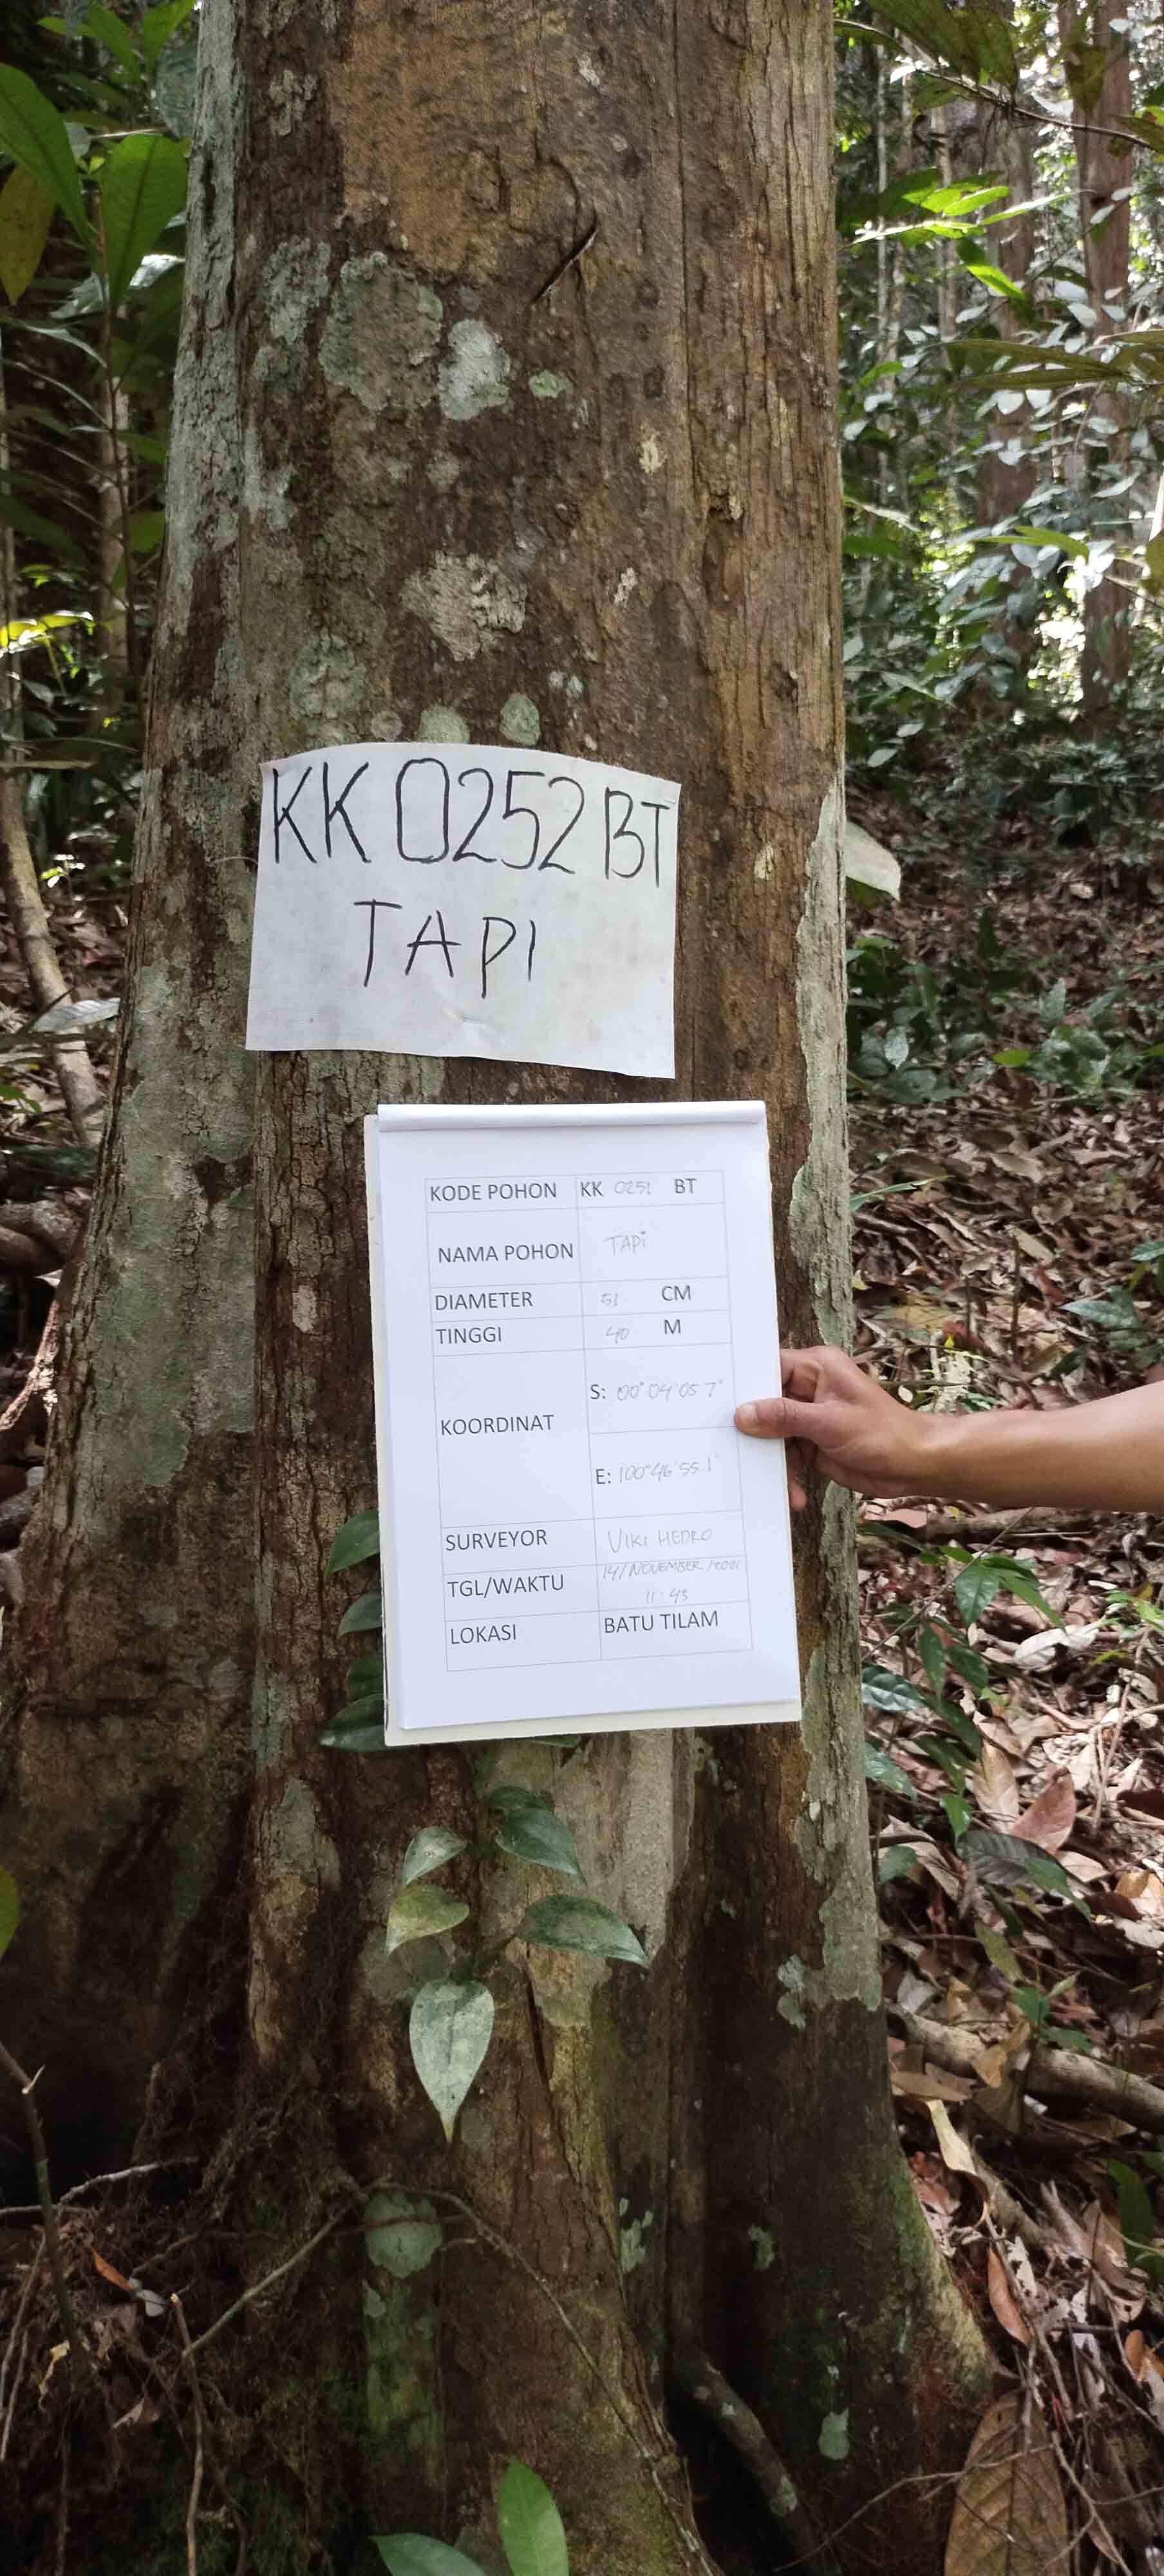 KK 0252 BT
TAPI
KODE POHON KK 0252 BT
NAMA POHON TAPi
DIAMETER 51 CM
TINGGI 40 M
KOORDINAT
S: 00° 04' 05.7"
E: 100° 46' 55.1"
SURVEYOR VIKI HEDRO
TGL/WAKTU 14/NOVEMBER/2021
11:43
LOKASI BATU TILAM